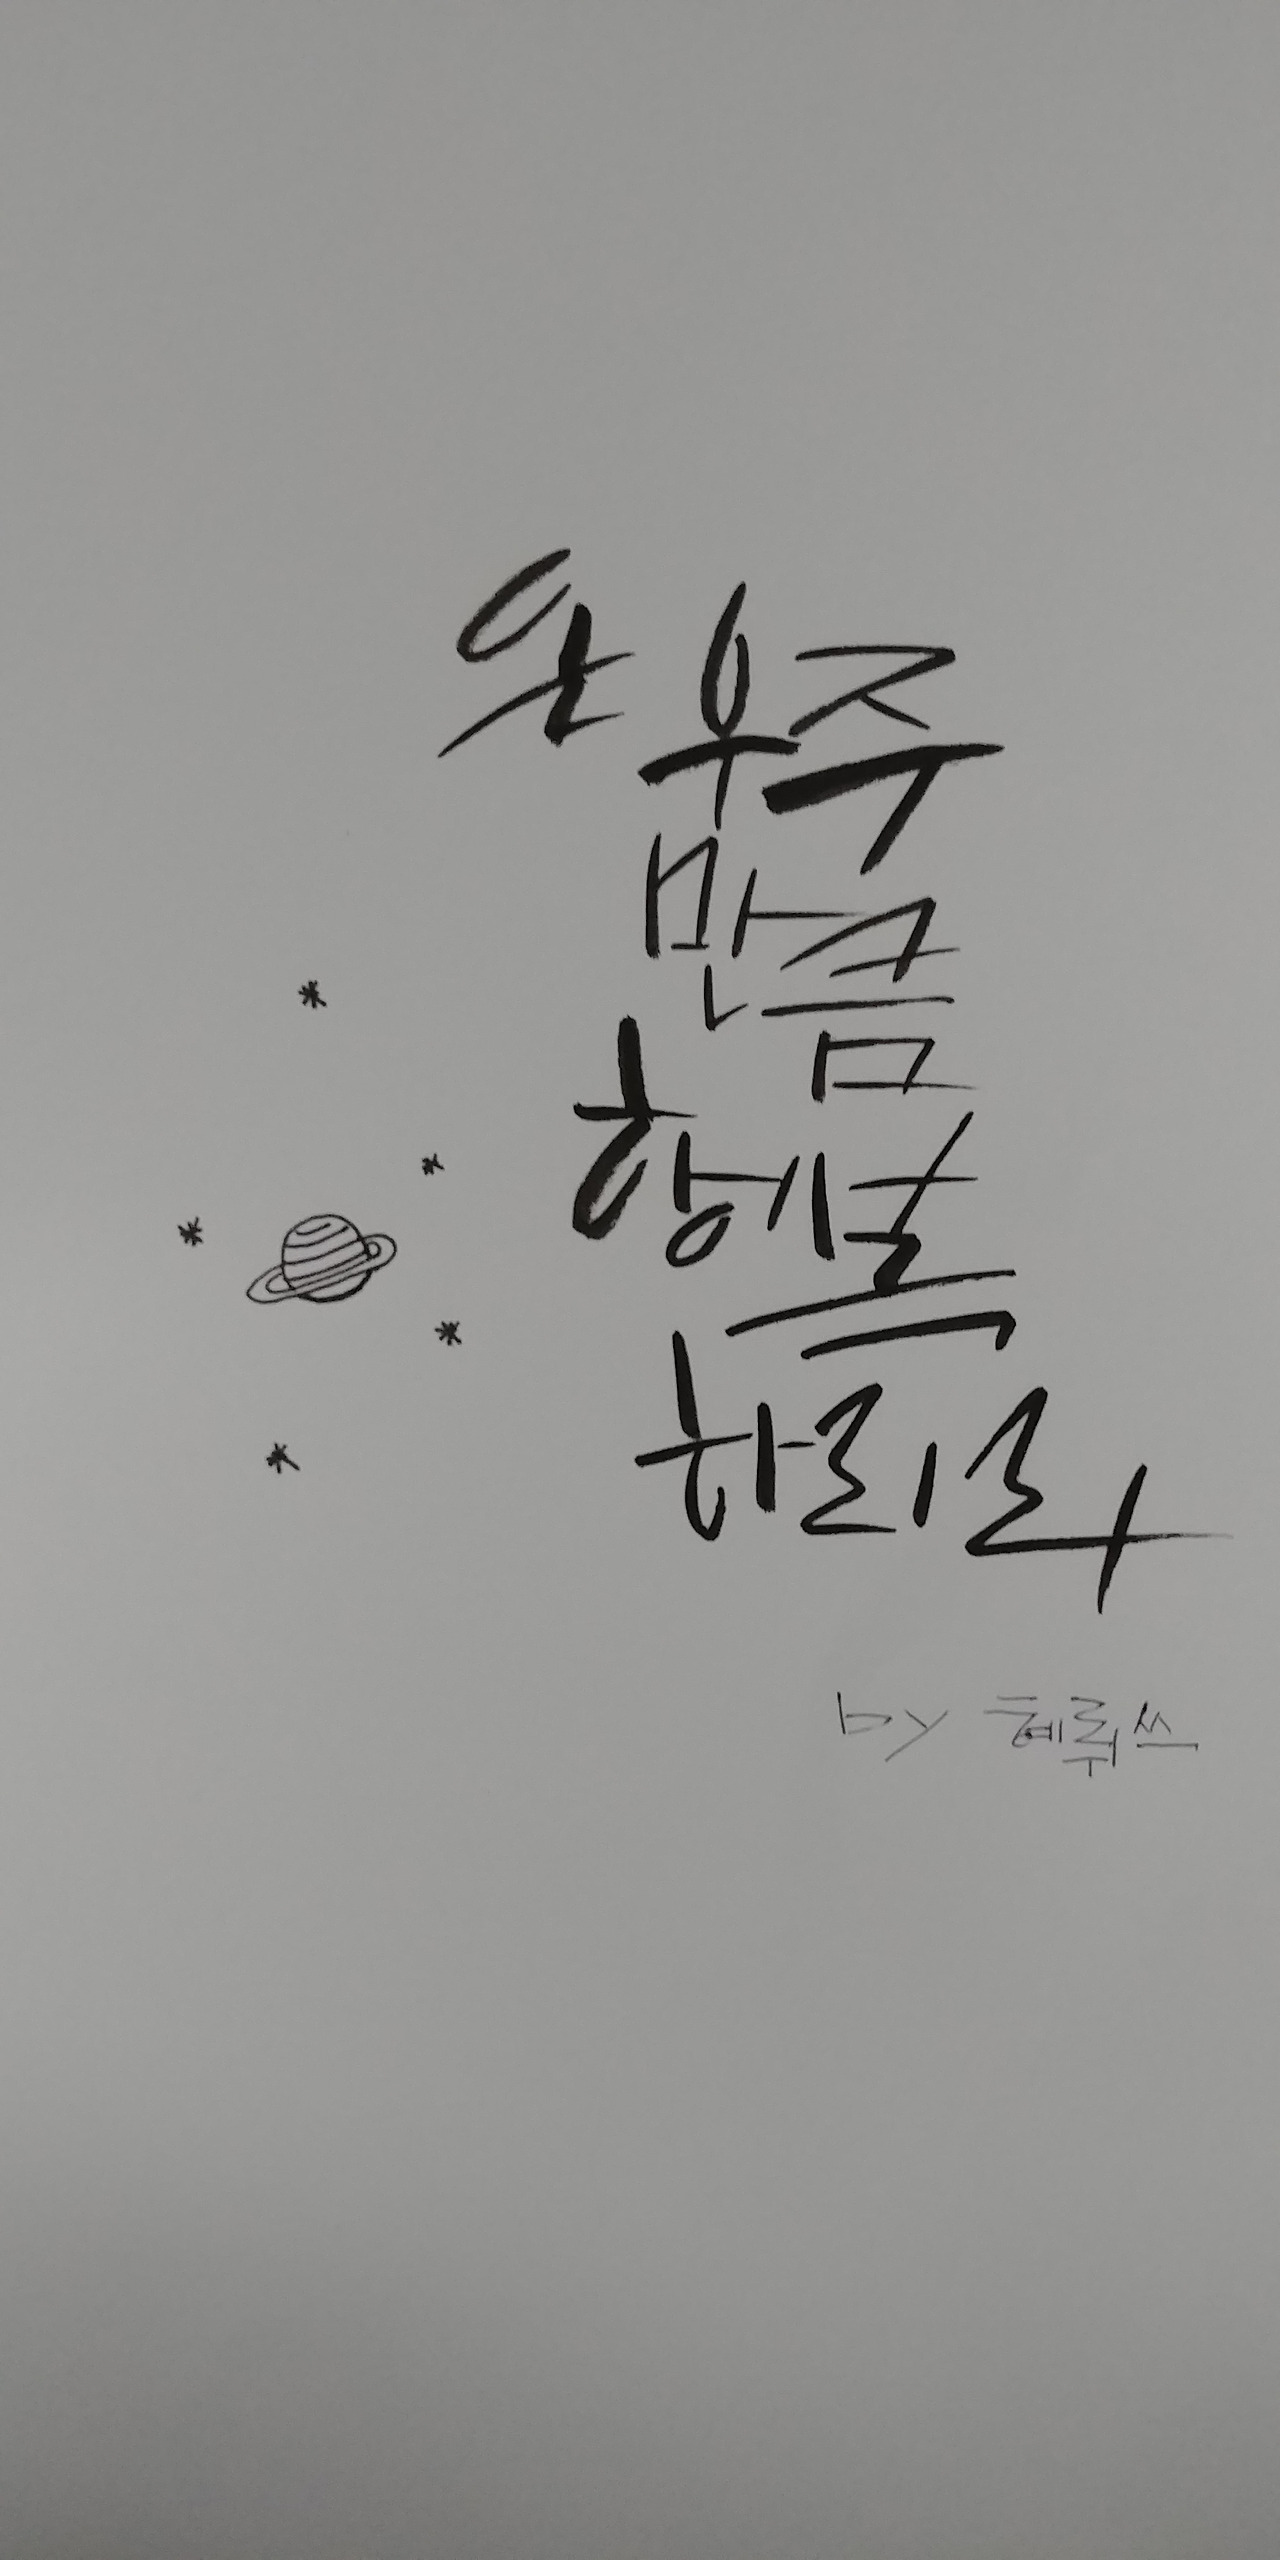 온 우주
만큼
행복
하리라
by 혜뤼쓰